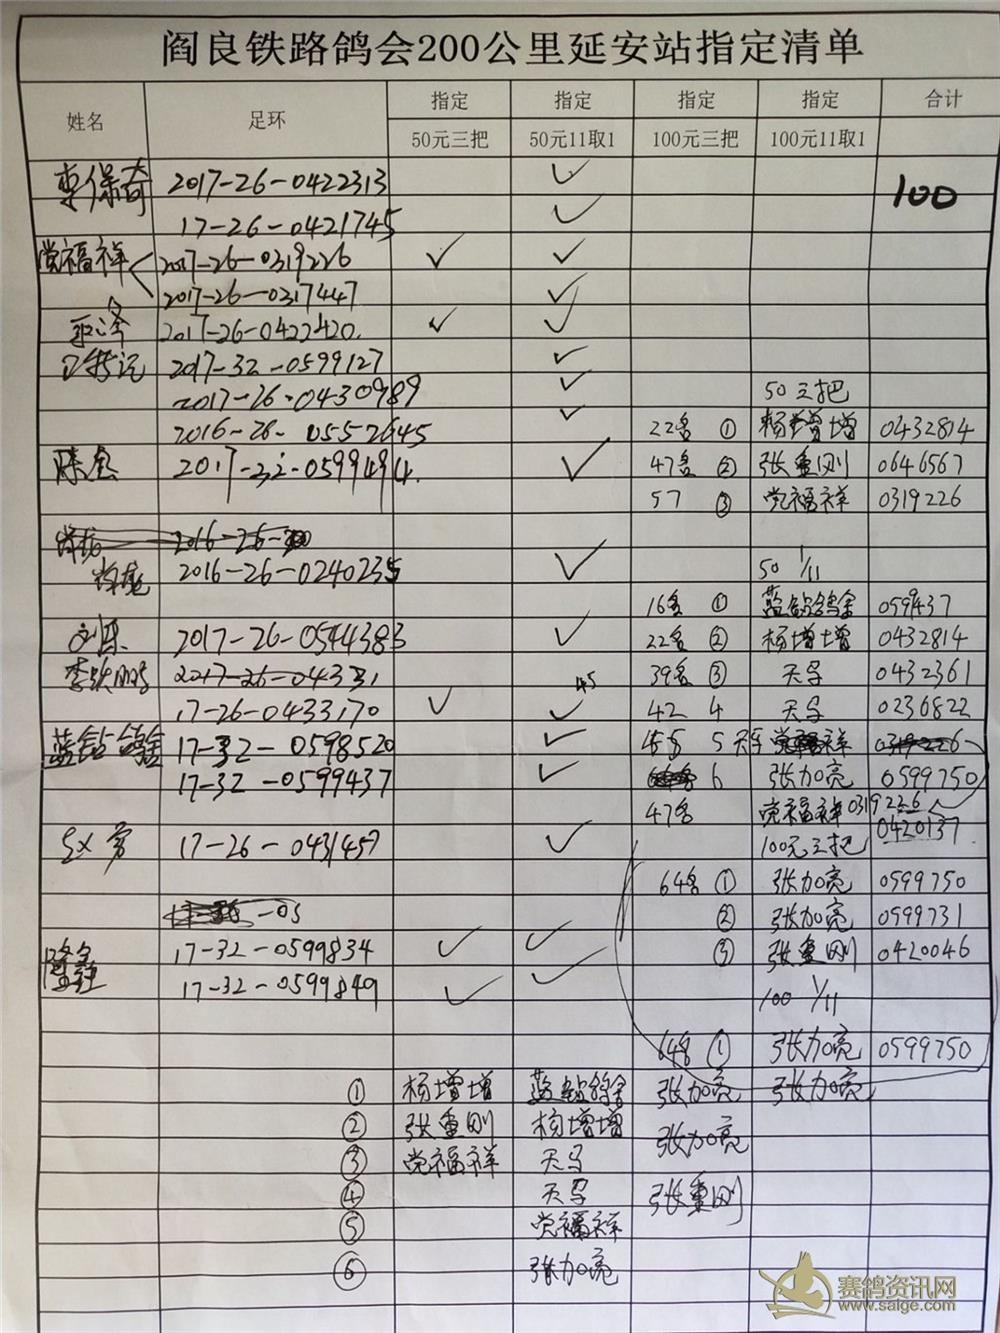 阎良铁路鸽会200公里延安站指定清单
姓名 足环 指定 指定 指定 指定 合计
50元三把 50元11取1 100元三把 100元11取1
李保奇 2017-26-0422313 ✓
17-26-0421745 ✓ 100
党福祥 2017-26-0319226 ✓ ✓
2017-26-0317447 ✓
2017-26-0422420. ✓ ✓
2017-32-0599127 ✓
2017-26-0430989 ✓ 50三把
2016-26-0552645 ✓ 22名 ① 杨增增 0432814
陈全 2017-32-0599494. ✓ 47名 ② 张重刚 0646567
57 ③ 党福祥 0319226
2016-26-
2016-26-0240235 ✓ 50 1/11
16名 ① 蓝钻鸽舍 0599437
刘乐 2017-26-0544383 ✓ 22名 ② 杨增增 0432814
李跃鹏 2017-26-0433 39名 ③ 天孚 0432361
17-26-0433170 ✓ ✓ 45 42 4 天孚 0236822
蓝钻鸽舍 17-32-0598520 ✓ 45名 5 天孚 党福祥 0319226
17-32-0599437 ✓ 6 张加亮 0599750
47名 党福祥0319226
17-26-0431457 ✓ 100元三把 0420137
64名 ① 张加亮 0599750
-05 ② 张加亮 0599731
隆鑫 17-32-0599834 ✓ ✓ ③ 张重刚 0420046
17-32-0599849 ✓ ✓ 100 1/11
64名 ① 张加亮 0599750
① 杨增增 蓝钻鸽舍 张加亮 张加亮
② 张重刚 杨增增 张加亮
③ 党福祥 天孚
④ 天孚 张重刚
⑤ 党福祥
⑥ 张加亮
赛鸽资讯网
www.saige.com